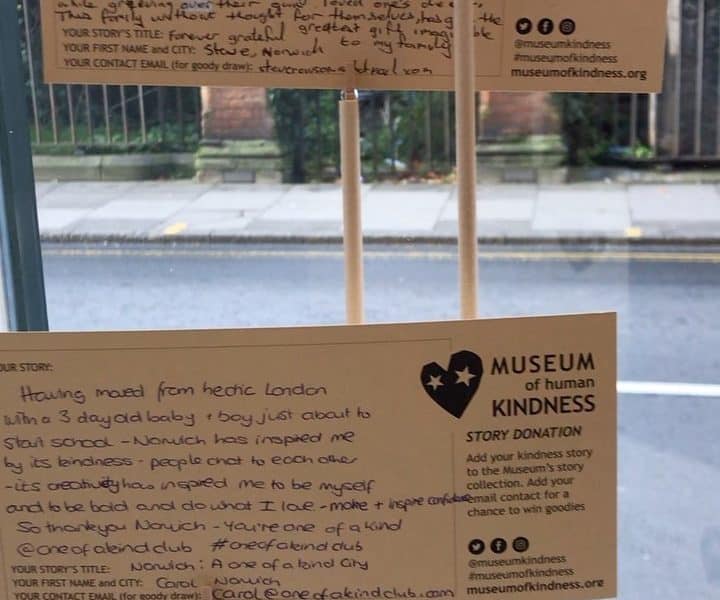 while grieving over their own loved one's dec
This family without thought for themselves, has g the
YOUR STORY'S TITLE: Forever grateful greatest gift imaginable
YOUR FIRST NAME and CITY: Steve, Norwich to my family
YOUR CONTACT EMAIL (for goody draw):
@museumkindness
#museumofkindness
museumofkindness.org
OUR STORY:
Having moved from hectic London
with a 3 day old baby + boy just about to
start school - Norwich has inspired me
by its kindness - people chat to each other
- its creativity has inspired me to be myself
and to be bold and do what I love - make + inspire confidence
So thankyou Norwich - you're one of a kind
@oneofakindclub #oneofakindclub
YOUR STORY'S TITLE: Norwich: A one of a kind City
YOUR FIRST NAME and CITY: Carol Norwich
YOUR CONTACT EMAIL (for goody draw): Carol@oneofakindclub.com
MUSEUM
of human
KINDNESS
STORY DONATION
Add your kindness story
to the Museum's story
collection. Add your
email contact for a
chance to win goodies
@museumkindness
#museumofkindness
museumofkindness.org